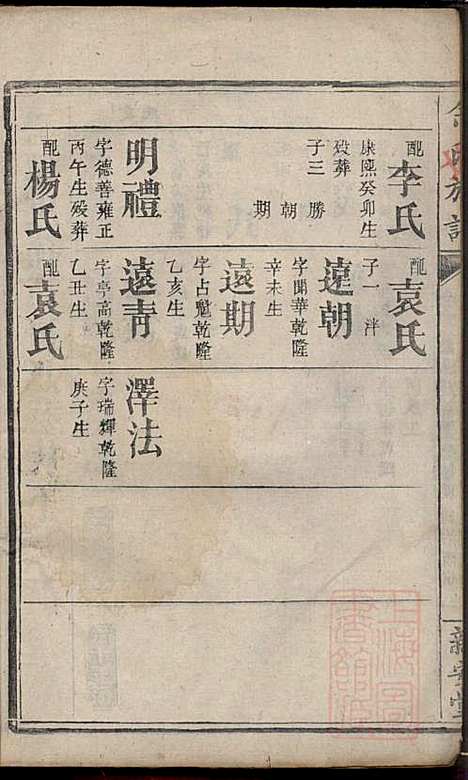 配李氏
康熙癸卯生
歿葬
子三 勝
朝
期
明禮
字德善雍正
丙午生歿葬
配楊氏
配袁氏
子一 泮
遠朝
字開華乾隆
辛未生
遠期
字占魁乾隆
乙亥生
遠靑
字亭高乾隆
乙丑生
配袁氏
澤法
字瑞輝乾隆
庚子生
上海圖書館藏